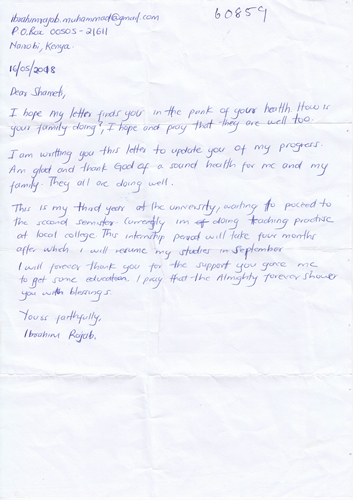 ibrahimrajab.muhammad@gmail.com
60859
P.O. Box 00505 - 21611
Nairobi, Kenya.
16/05/2018
Dear Shameti,
I hope my letter finds you in the pink of your health. How is
your family doing, I hope and pray that they are well too.
I am writing you this letter to update you of my progress.
Am glad and thank God of a sound health for me and my
family. They all are doing well.
This is my third year at the university, waiting to proceed to
the second semister. Currently im doing teaching practise
at local college. This internship period will take four months
after which i will resume my studies in September
I will forever thank you for the support you gave me
to get some education. I pray that the Almighty forever shower
you with blessings.
Yours faithfully,
Ibrahim Rajab.